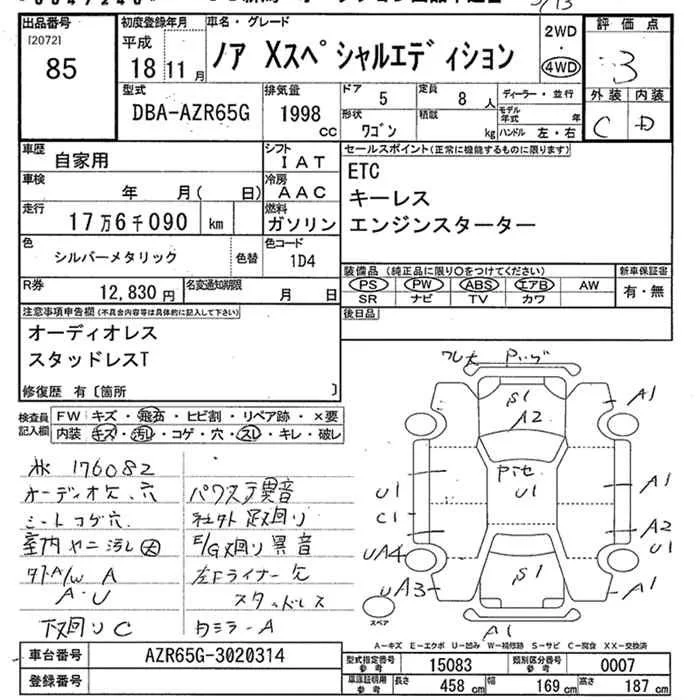 出品番号
[2072]
85
初度登録年月
平成
18 11 月
車名・グレード
ノア Xスペシャルエディション
2WD
・
4WD
評価点
3
外装 内装
C D
型式
DBA-AZR65G
排気量
1998
cc
ドア
5
定員
8 人
形状
ワゴン
積載
kg
ディーラー・並行
モデル年式 年
ハンドル 左・右
車歴
自家用
シフト
IAT
車検
年 月( 日)
冷房
AAC
走行
17万6千090 km
燃料
ガソリン
色
シルバーメタリック
色替
色コード
1D4
R券
12,830 円
名変通知期限
月 日
セールスポイント(正常に機能するものに限ります)
ETC
キーレス
エンジンスターター
装備品 (純正品に限り○をつけてください)
PS PW ABS エアB AW
SR ナビ TV カワ
新車保証書
有・無
後日品
注意事項申告欄(不具合内容等は具体的に記入して下さい)
オーディオレス
スタッドレスT
修復歴 有〔箇所 〕
検査員記入欄
FW キズ・飛石・ヒビ割・リペア跡・×要
内装 キズ・汚レ・コゲ・穴・スレ・キレ・破レ
176082
オーディオ欠、穴
シートコゲ穴
室内ヤニ汚レ大
タイヤA/W A
A・U
下廻りC
パワステ異音
社外足廻り
E/G廻り異音
左Fライナー欠
スタッドレス
ワレ大
S1
A2
A1
U1
U1
C1
A1
A2
U1
UA4
UA3
S1
A1
A1
スペア
A-キズ E-エクボ U-凹み W-補修跡 S-サビ C-腐食 XX-交換済
車台番号
AZR65G-3020314
登録番号
型式指定番号
参考
15083
類別区分番号
参考
0007
車庫証明用
参考
長さ
458 cm
幅
169 cm
高さ
187 cm